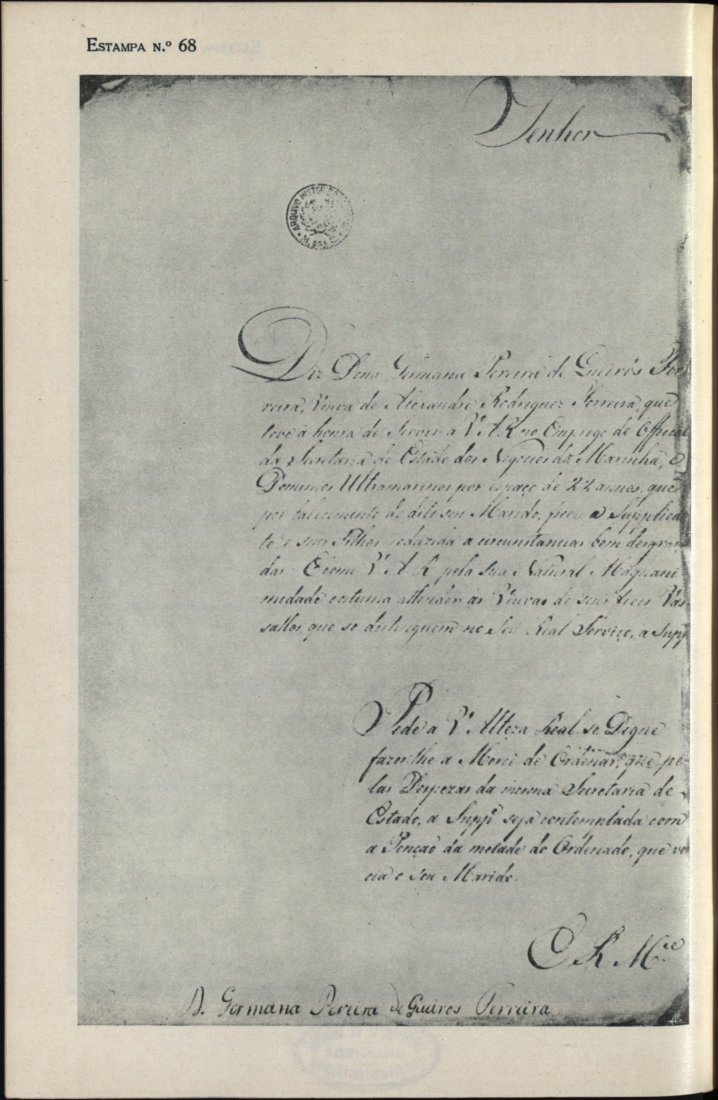 ESTAMPA N.º 68
Senhor
Diz Dona Germana Pereira de Queirós Fer
reira, Viuva de Alexandre Rodriguez Ferreira, que
teve a honra de Servir a V. A. R. no Emprego de Official
da Secretaria de Estado dos Negocios da Marinha, e
Dominios Ultramarinos por espaço de 22 annos, que
por falecimento do dito seu Marido, ficou a Supplican
te e seus Filhos reduzida a circunstancias bem desgraça
das E como V. A. R. pela Sua Natural Magnani
midade costuma attender as Viuvas de seus fieis Vas
sallos, que se distinguem no Seu Real Serviço, a Supp
Pede a V. Alteza Real se Digne
fazer-lhe a Mercê de Ordenar, que pe
las Despezas da mesma Secretaria de
Estado, a Supp.e seja contemplada com
a Penção da metade do Ordenado, que ven
cia o seu Marido.
E R M.ce
D. Germana Pereira de Queiros Ferreira